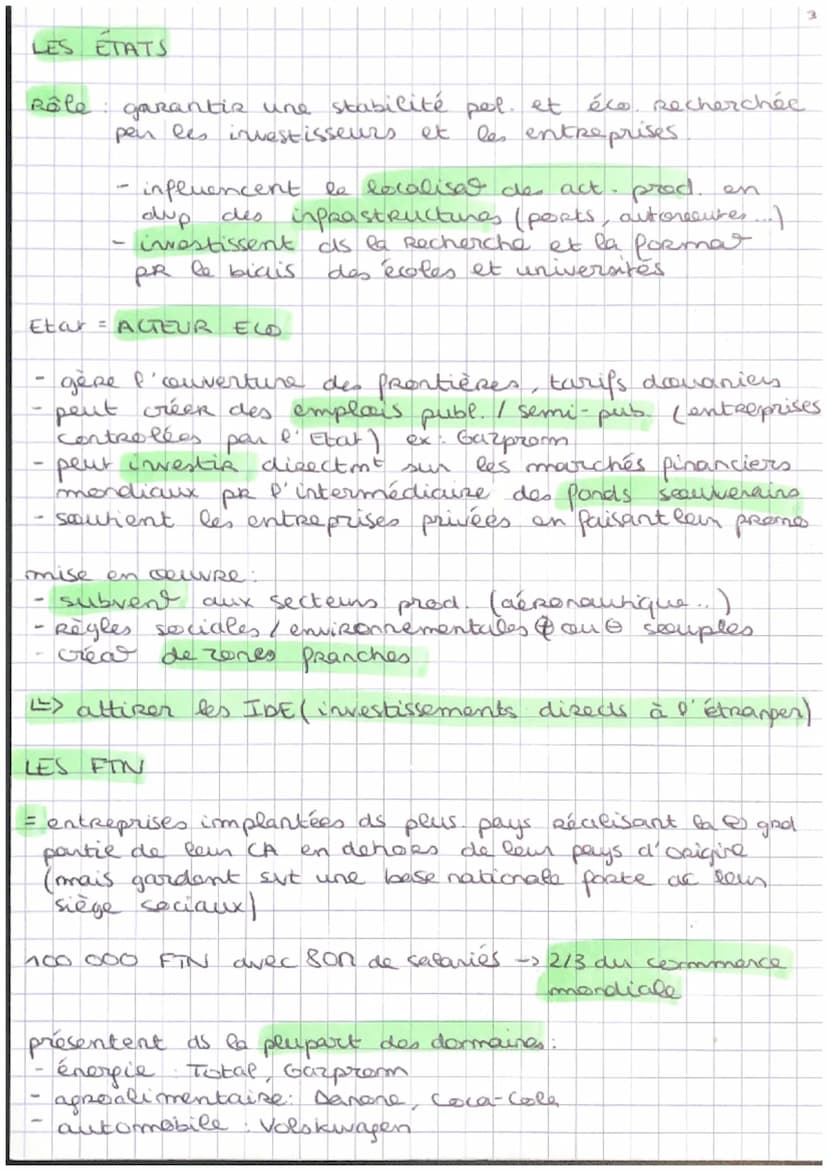 3
LES ÉTATS
Rôle : garantir une stabilité pol. et éco. recherchée
par les investisseurs et les entreprises.
- influencent la localisat° des act. prod. en
dvp des infrastructures (ports, autoroutes...)
- investissent ds la recherche et la format°
pr le biais des écoles et universités
Etat = ACTEUR ECO
- gère l'ouverture des frontières, tarifs douaniers
- peut créer des emplois publ. / semi-pub. (entreprises
contrôlées par l'Etat) ex : Gazprom
- peut investir directmt sur les marchés financiers
mondiaux pr l'intermédiaire des fonds souverains
- soutient les entreprises privées en faisant leur promo
mise en oeuvre :
- subvent° aux secteurs prod. (aéronautique..)
- Règles sociales / environnementales ⊕ ou ⊖ souples
- créat° de zones franches
↳> attirer les IDE (investissements directs à l'étranger)
LES FTN
= entreprises implantées ds plus. pays réalisant la ⊕ grd
partie de leur CA en dehors de leur pays d'origine
(mais gardant svt une base nationale forte ac leur
siège sociaux)
100 000 FTN avec 80M de salariés -> 2/3 du commerce
mondiale
présentent ds la plupart des domaines :
- énergie : Total, Gazprom
- agroalimentaire : Danone, Coca-Cola
- automobile : Volskwagen